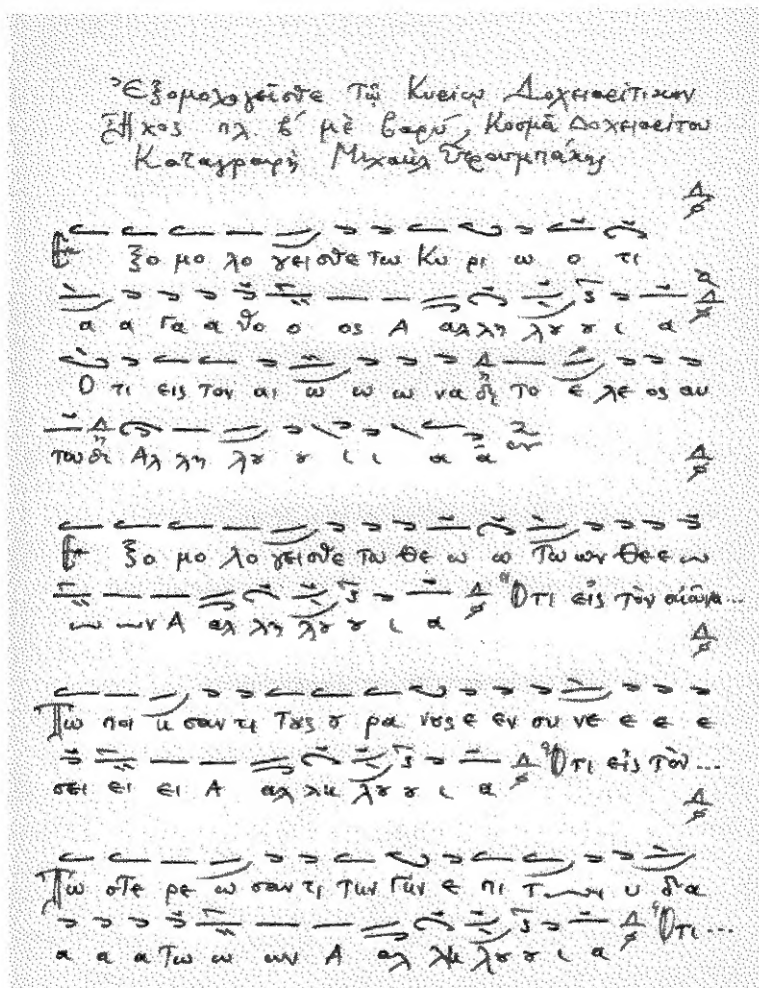 Ἐξομολογεῖσθε Τῷ Κυρίῳ Δοχειαρίτικον
Ἦχος πλ. β´ μὲ βαρύ, Κοσμᾶ Δοχειαρίτου
Καταγραφὴ Μιχαὴλ Στρουμπάκης
Ε ξο μο λο γει σθε Τω Κυ ρι ω ο τι
α α γα α θο ο ος Α αλ λη λου ου ι α
Ο τι εις τον αι ω ω ω να δη το ε λε ος αυ
του δη Αλ λη λου ου ι ι α α
Ε ξο μο λο γει σθε τω Θε ω ω Τω ων Θε ε ω
ω ων Α αλ λη λου ου ι α Ὅτι εἰς τὸν αἰῶνα...
Τω ποι η σαν τι τους ου ρα νους ε εν συ νε ε ε ε
σει ει ει Α αλ λη λου ου ι α Ὅτι εἰς τὸν...
Τω στε ρε ω σαν τι την γην ε πι των υ δα
α α α Τω ω ων Α αλ λη λου ου ι α Ὅτι...